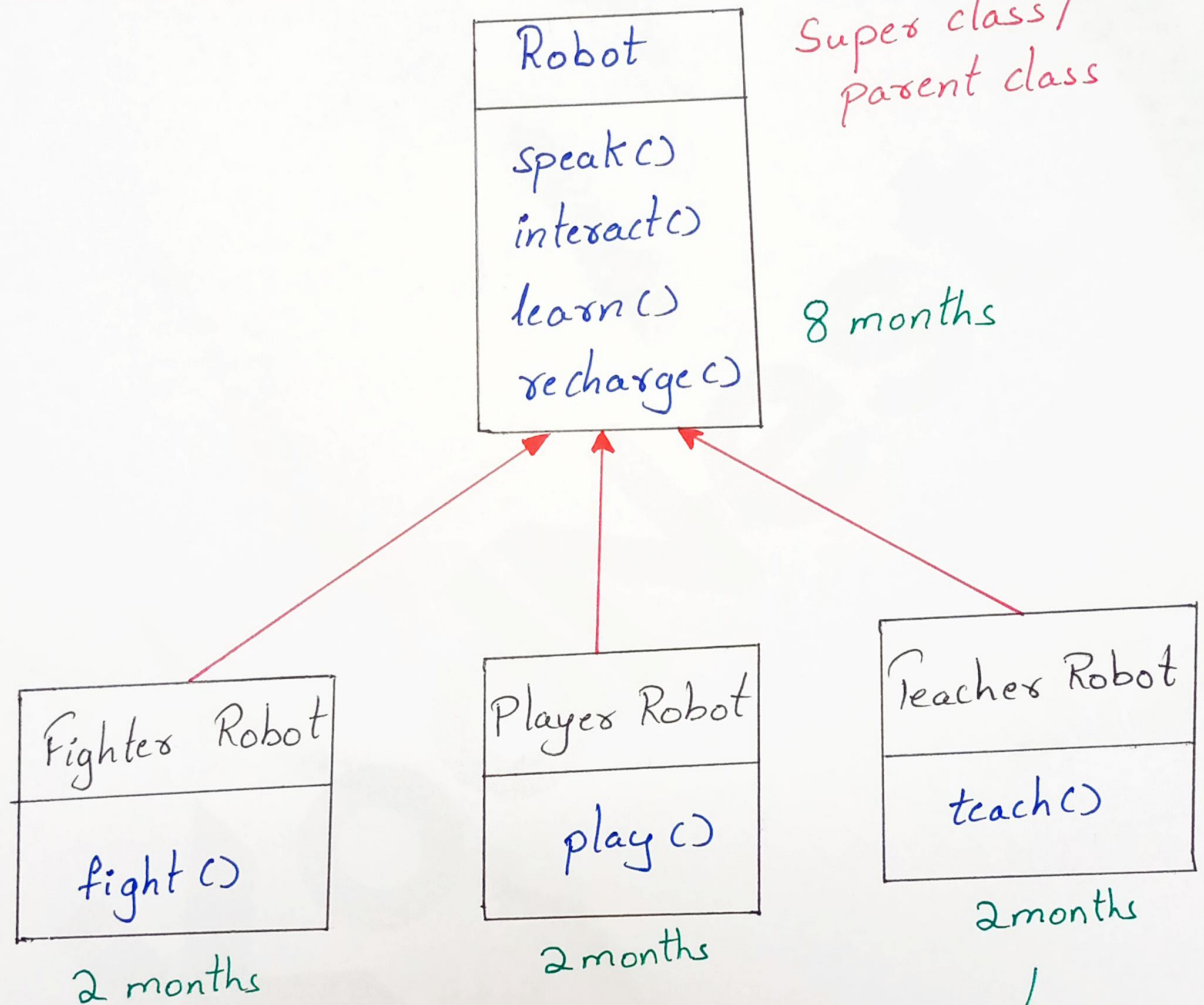 Robot
Super class/
parent class
speak()
interact()
learn()
recharge()
8 months
Fighter Robot
fight()
2 months
Player Robot
play()
2 months
Teacher Robot
teach()
2 months